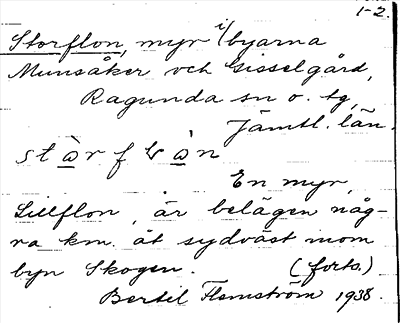 1-2.
Storflon, myr i byarna
Munsåker och Gisselgård,
Ragunda sn o. tg,
Jämtl. län.
stàrflàn
En myr,
Lillflon, är belägen någ-
ra km. åt sydväst inom
byn Skogen. (forts.)
Bertil Flemström 1938.